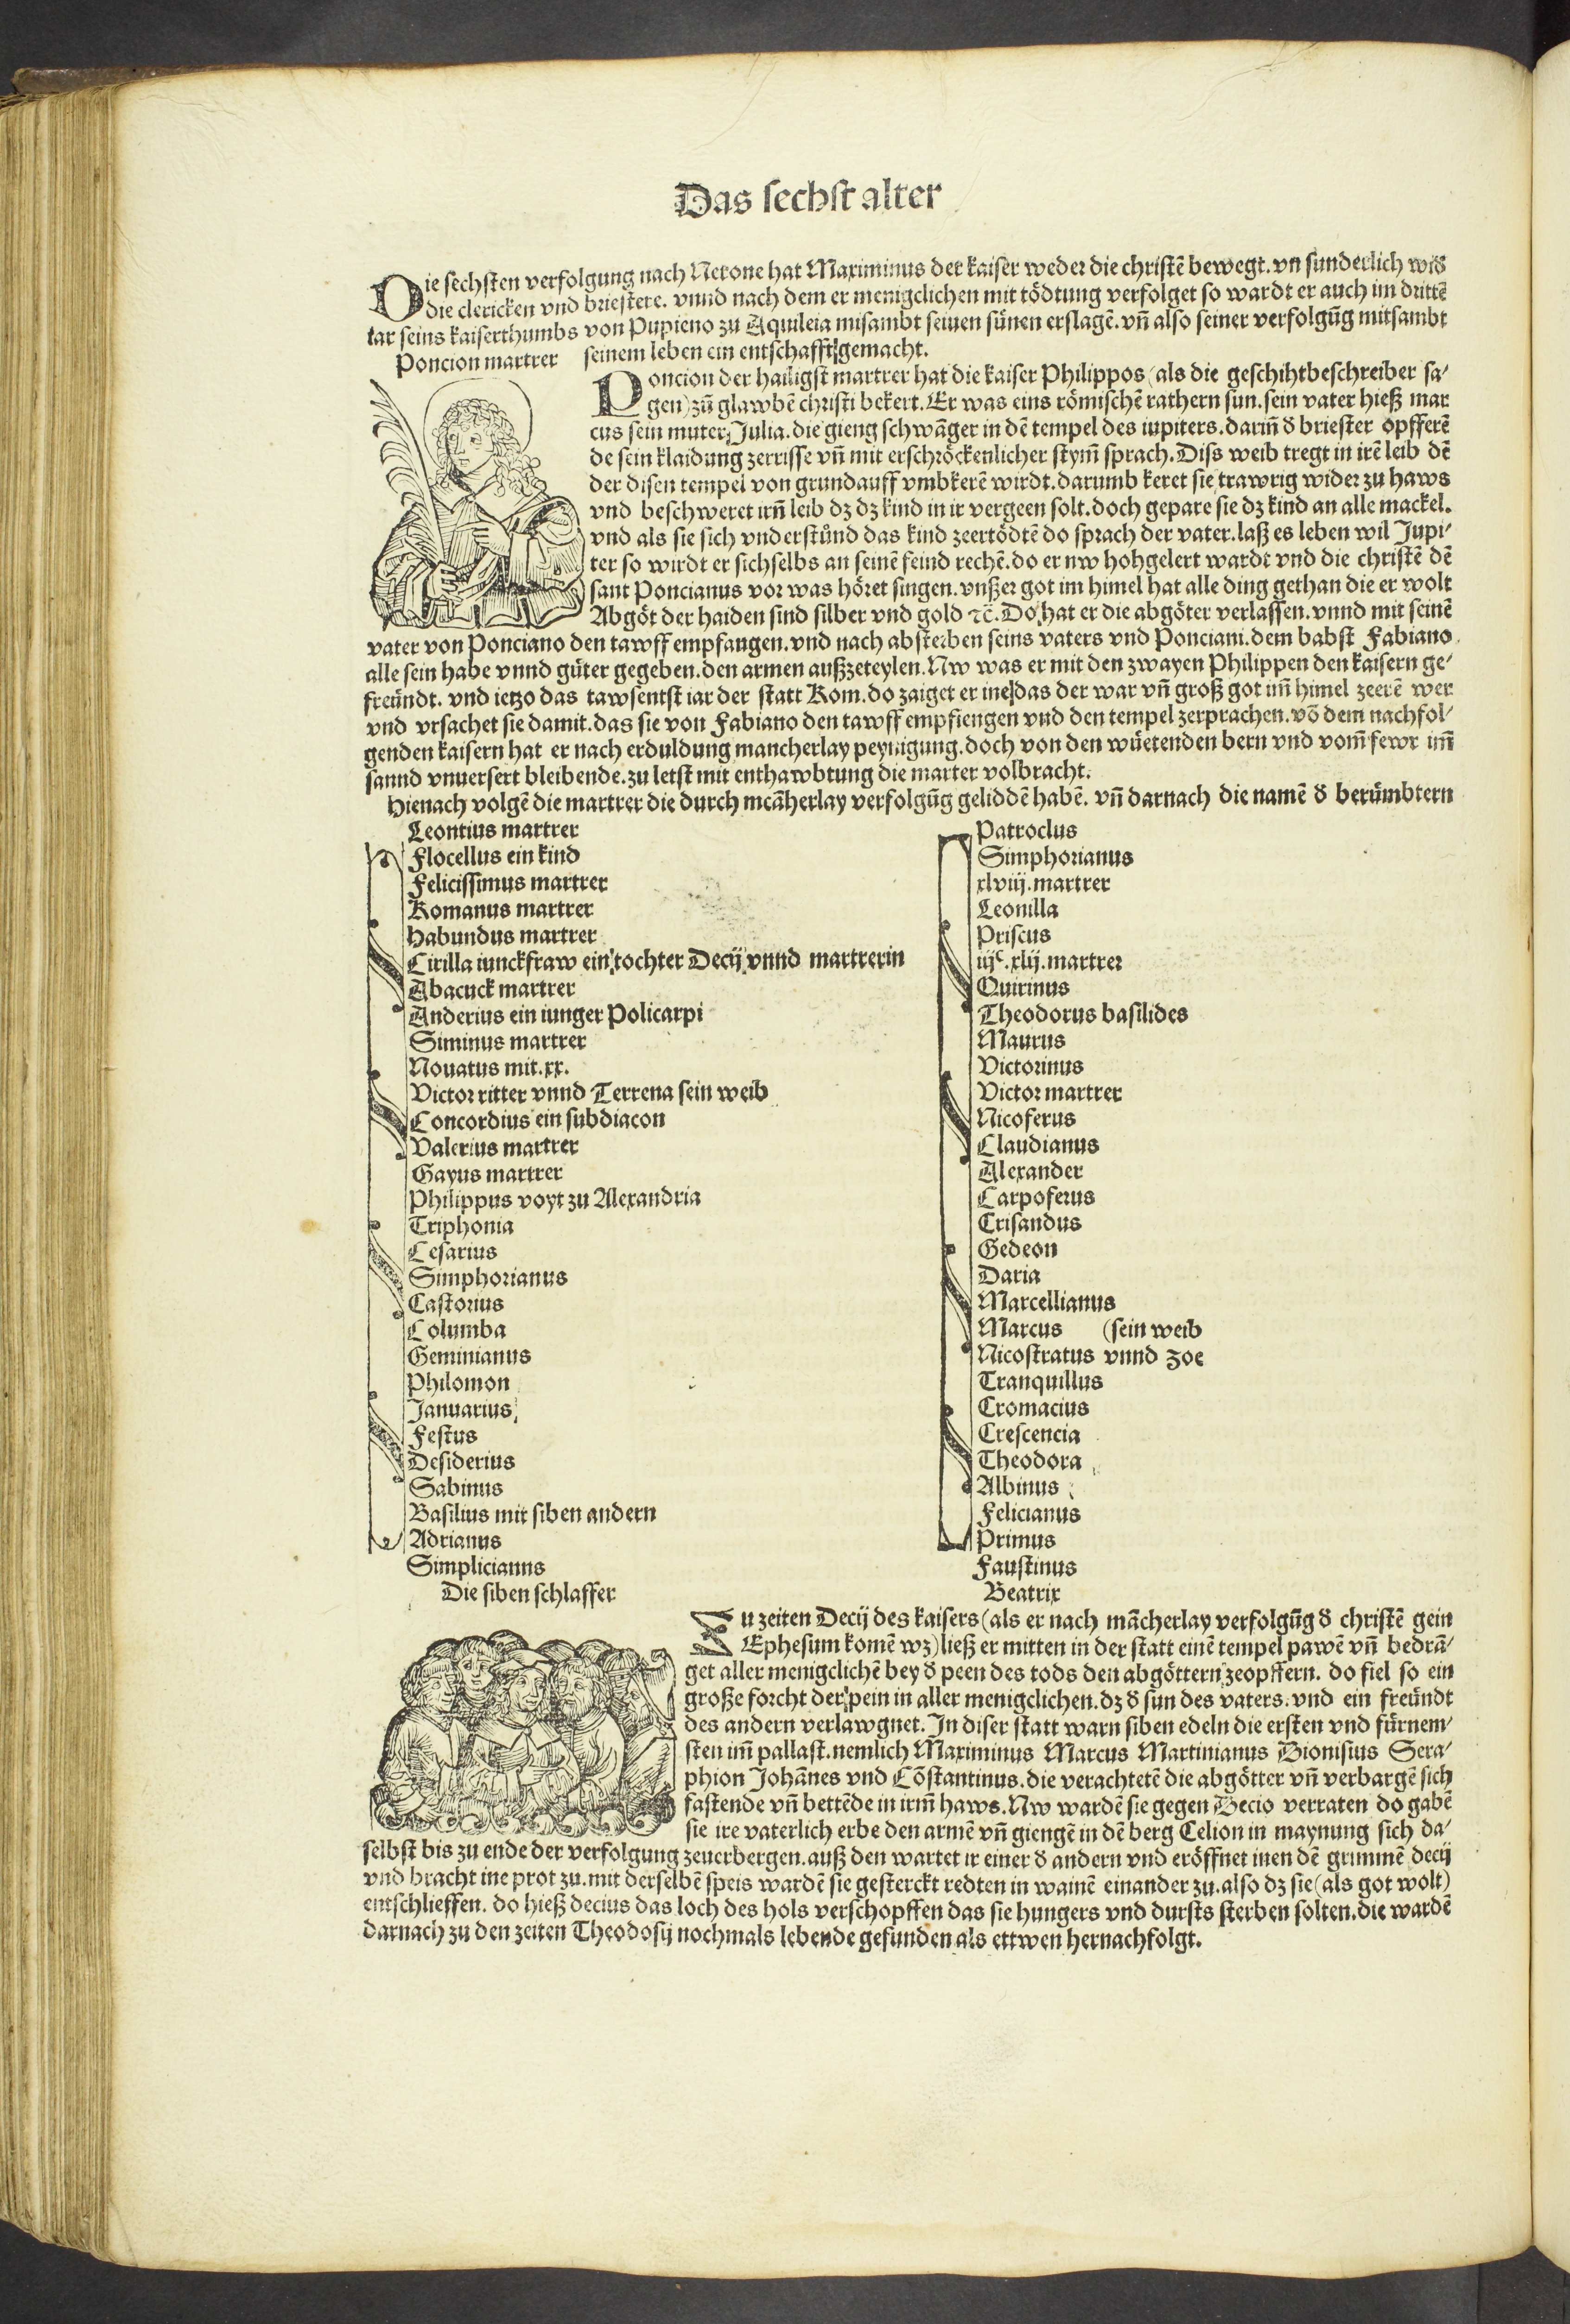 Das sechst alter
Die sechsten verfolgung nach Nerone hat Maximinus der kaiser weder die christẽ bewegt. vn sunderlich wiď
die clericken vnd briestere. vnnd nach dem er menigclichen mit tödtung verfolget so wardt er auch im drittẽ
iar seins kaiserthumbs von Pupieno zu Aquileia misambt seinen sünen erslagẽ. vñ also seiner verfolgũg mitsambt
seinem leben ein entschafft gemacht.
Poncion martrer
Poncion der hailigst martrer hat die kaiser Philippos (als die geschihtbeschreiber sa⸗
gen) zů glawbẽ christi bekert. Er was eins römischẽ rathern sun. sein vater hieß mar
cus sein muter Julia. die gieng schwãger in dẽ tempel des iupiters. dariñ ď briester opfferẽ
de sein klaidung zerrisse vñ mit erschröckenlicher stym̃ sprach. Diss weib tregt in irẽ leib dẽ
der disen tempel von grundauff vmbkerẽ wirdt. darumb keret sie trawrig wider zu haws
vnd beschweret irñ leib dz dz kind in ir vergeen solt. doch gepare sie dz kind an alle mackel.
vnd als sie sich vnderstůnd das kind zeertödtẽ do sprach der vater. laß es leben wil Jupi⸗
ter so wirdt er sichselbs an seinẽ feind rechẽ. do er nw hohgelert wardt vnd die christẽ dẽ
sant Poncianus vor was höret singen. vnßer got im himel hat alle ding gethan die er wolt
Abgöt der haiden sind silber vnd gold ꝛc̃. Do hat er die abgöter verlassen. vnnd mit seinẽ
vater von Ponciano den tawff empfangen. vnd nach absterben seins vaters vnd Ponciani. dem babst Fabiano
alle sein habe vnnd güter gegeben. den armen außzeteylen. Nw was er mit den zwayen Philippen den kaisern ge⸗
freündt. vnd ietzo das tawsentst iar der statt Rom. do zaiget er ine das der war vñ groß got im̃ himel zeerẽ wer
vnd vrsachet sie damit. das sie von Fabiano den tawff empfiengen vnd den tempel zerprachen. võ dem nachfol⸗
genden kaisern hat er nach erduldung mancherlay peynigung. doch von den wüetenden bern vnd vom̃ fewr im̃
sannd vnuersert bleibende. zu letst mit enthawbtung die marter volbracht.
Hienach volgẽ die martrer die durch mcãherlay verfolgũg geliddẽ habẽ. vñ darnach die namẽ ď berümbtern
Leontius martrer
Flocellus ein kind
Felicissimus martrer
Romanus martrer
Habundus martrer
Cirilla iunckfraw ein tochter Decij vnnd martrerin
Abacuck martrer
Anderius ein iunger Policarpi
Siminus martrer
Nouatus mit .xx.
Victor ritter vnnd Terrena sein weib
Concordius ein subdiacon
Valerius martrer
Gayus martrer
Philippus voyt zu Alexandria
Triphonia
Cesarius
Simphorianus
Castorius
Columba
Geminianus
Philomon
Januarius
Festus
Desiderius
Sabinus
Basilius mit siben andern
Adrianus
Simplicianns
Patroclus
Simphorianus
xlviij. martrer
Leonilla
Priscus
iijᶜ. xlij. martrer
Quirinus
Theodorus basilides
Maurus
Victorinus
Victor martrer
Nicoferus
Claudianus
Alexander
Carpoferus
Crisandus
Gedeon
Daria
Marcellianus
Marcus (sein weib
Nicostratus vnnd zoe
Tranquillus
Cromacius
Crescencia
Theodora
Albinus
Felicianus
Primus
Faustinus
Beatrix
Die siben schlaffer
Zu zeiten Decij des kaisers (als er nach mãcherlay verfolgũg ď christẽ gein
Ephesum komẽ wz) ließ er mitten in der statt einẽ tempel pawẽ vñ bedrã⸗
get aller menigclichẽ bey ď peen des tods den abgöttern zeopffern. do fiel so ein
große forcht der pein in aller menigclichen. dz ď sun des vaters. vnd ein freündt
des andern verlawgnet. In diser statt warn siben edeln die ersten vnd fürnem⸗
sten im̃ pallast. nemlich Maximinus Marcus Martinianus Dionisius Sera⸗
phion Johãnes vnd Cõstantinus. die verachtetẽ die abgötter vñ verbargẽ sich
fastende vñ bettẽde in irm̃ haws. Nw wardẽ sie gegen Decio verraten do gabẽ
sie ire vaterlich erbe den armẽ vñ giengẽ in dẽ berg Celion in maynung sich da⸗
selbst bis zu ende der verfolgung zeuerbergen. auß den wartet ir einer ď andern vnd eröffnet inen dẽ grimmẽ decij
vnd bracht ine prot zu. mit derselbẽ speis wardẽ sie gesterckt redten in wainẽ einander zu. also dz sie (als got wolt)
entschlieffen. do hieß decius das loch des hols verschopffen das sie hungers vnd dursts sterben solten. die wardẽ
darnach zu den zeiten Theodosij nochmals lebende gefunden als ettwen hernachfolgt.